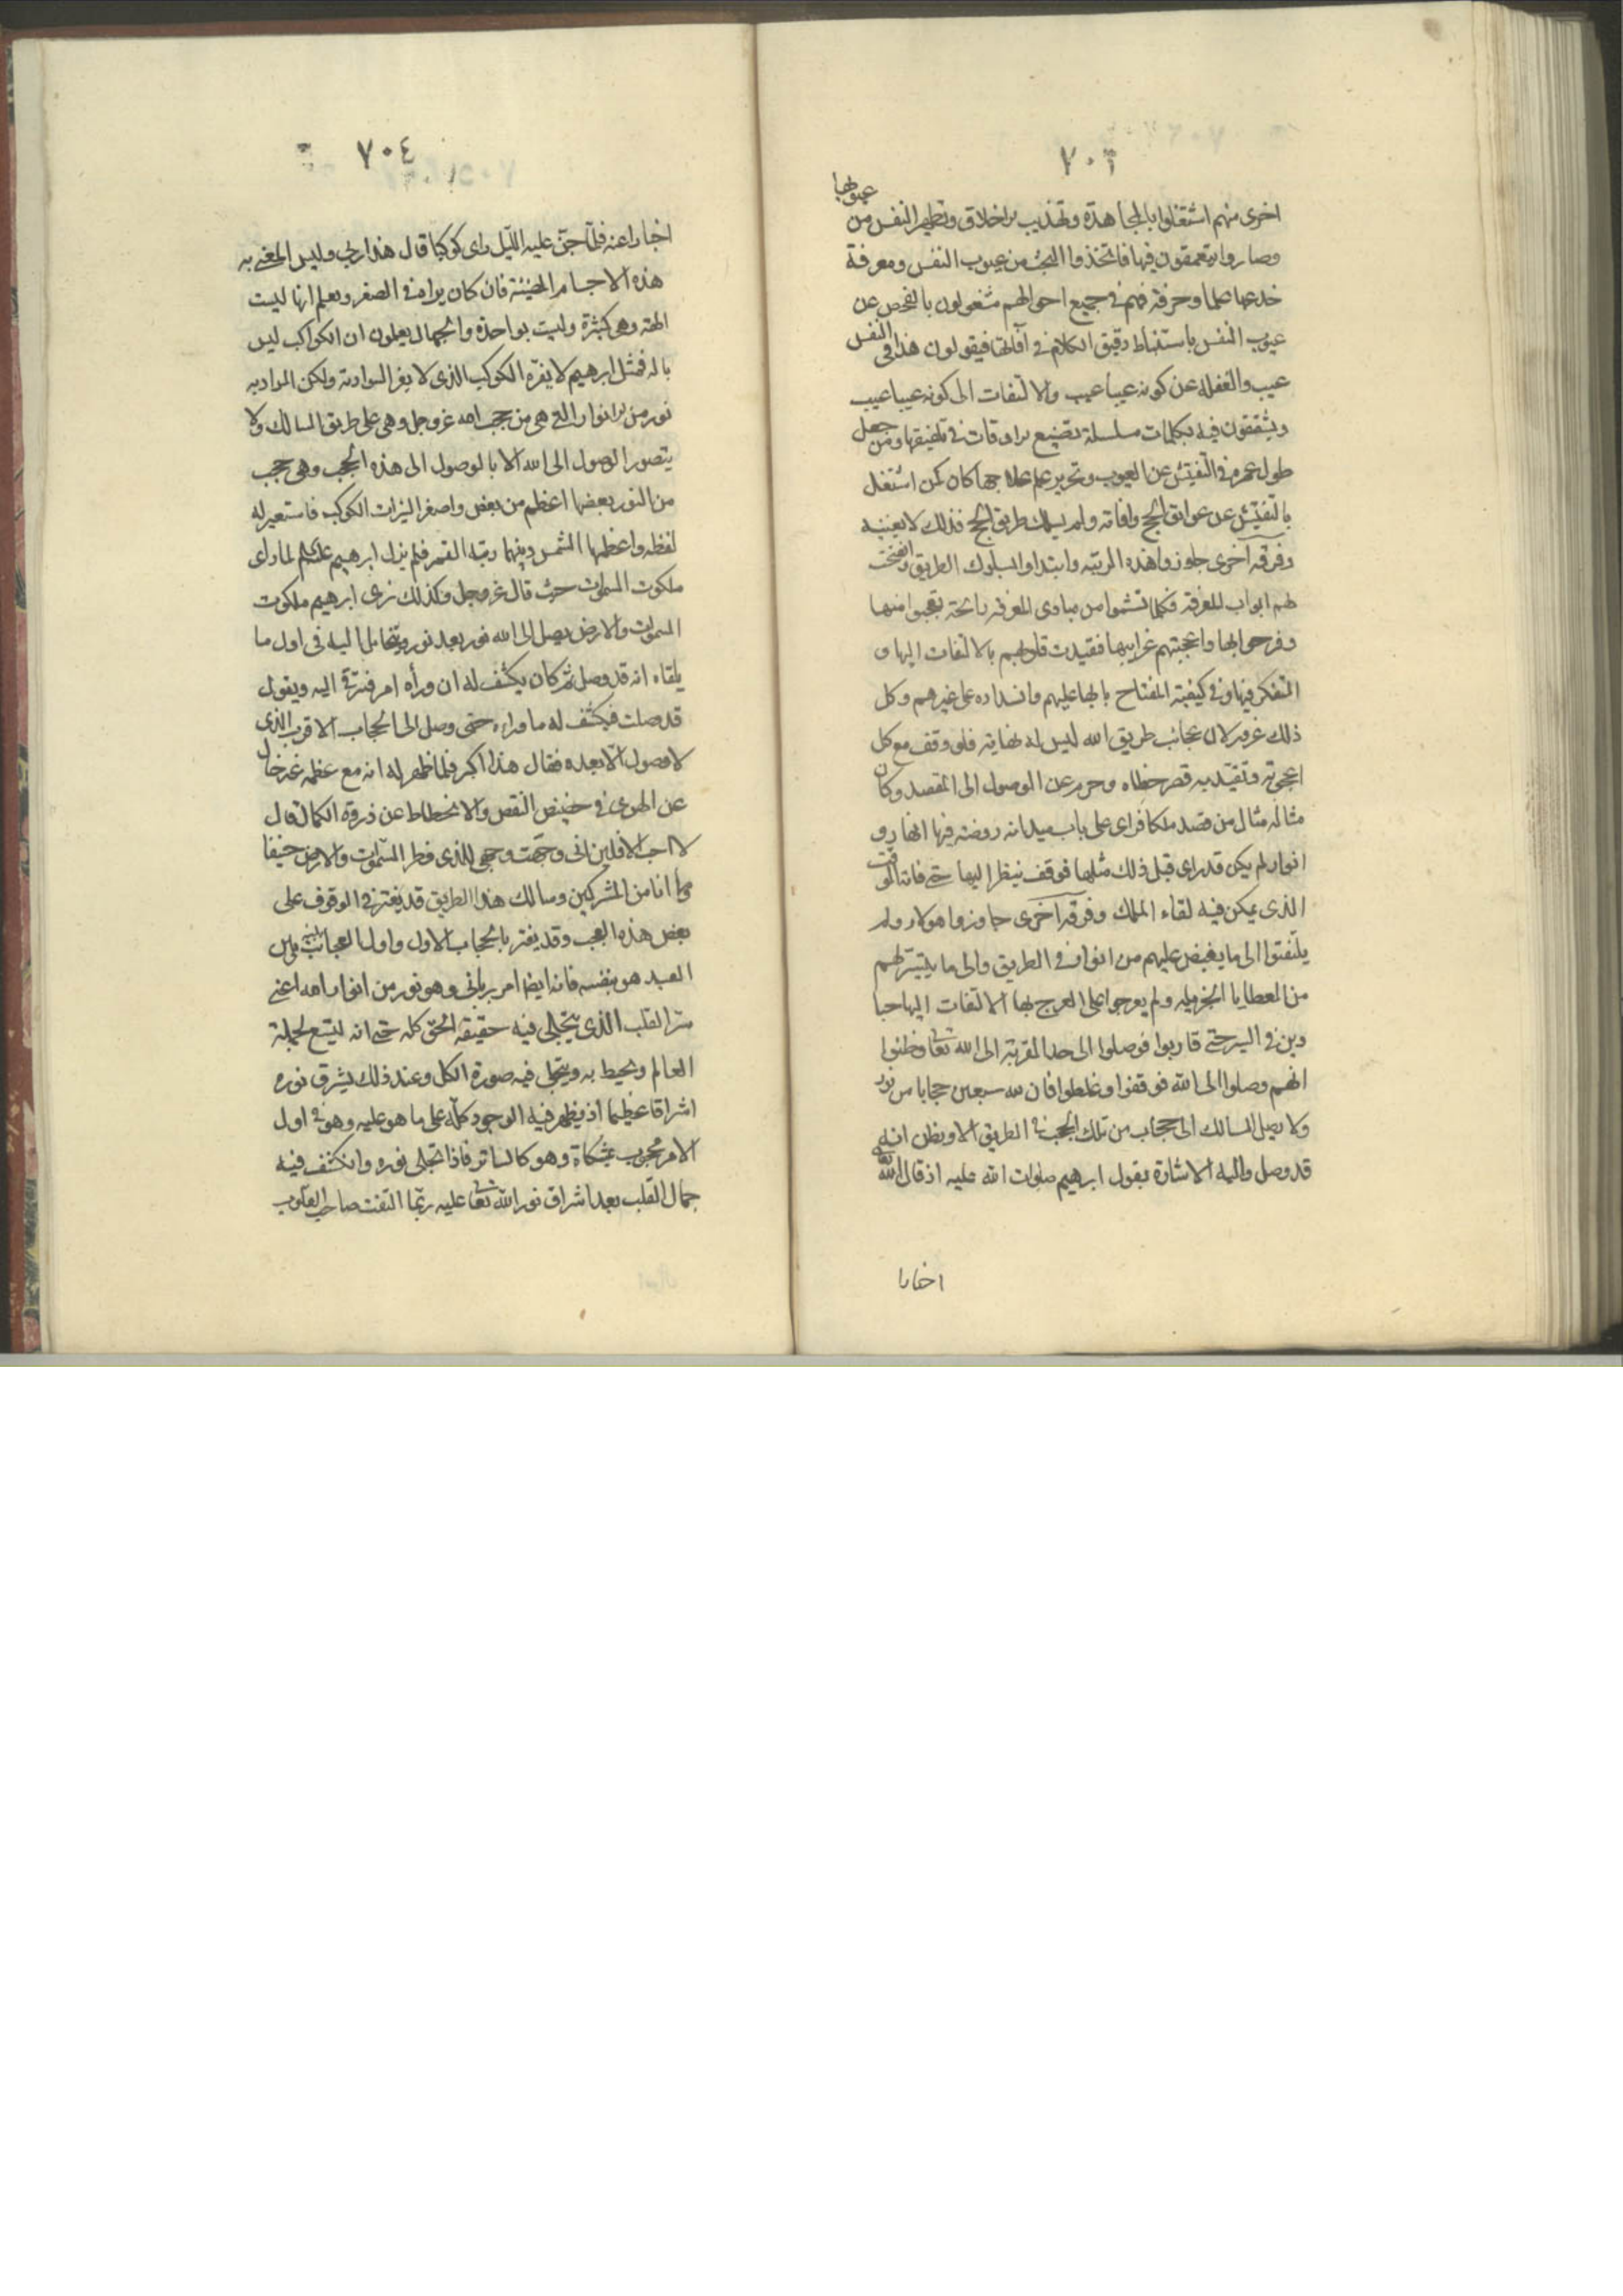 ٧٠٣
عيوبها
اخرى منهم اشتغلوا بالمجاهدة وتهذيب الاخلاق وتطهير النفس من
وصاروا يتعمقون فيها فاتخذوا البحث من عيوب النفس ومعرفة
خدعها علما وحرفة فهم في جميع احوالهم مشغولون بالفحص عن
عيوب النفس باستنباط دقيق الكلام في آفاتها فيقولون هذا في النفس
عيب والغفلة عن كونه عيبا عيب والالتفات الى كونه عيبا عيب
ويشققون فيه بكلمات مسلسلة تضيع الاوقات في تلفيقها ومن جعل
طول عمره في التفتيش عن العيوب وتحرير علم علاجها كان كمن اشتغل
بالتفتيش عن عوايق الحج وافاته ولم يسلك طريق الحج فذلك لا يغنيه
وفرقة اخرى جاوزوا هذه المرتبة وابتداوا لسلوك الطريق وانفتحت
لهم ابواب المعرفة فكلما تشموا من مبادى المعرفة رائحة تعجبوا منها
وفرحوا بها واعجبتهم غرايبها فتقيدت قلوبهم بالالتفات اليها و
التفكر فيها وفي كيفية انفتاح بابها عليهم وانسداده على غيرهم وكل
ذلك غرور لان عجائب طريق الله ليس له نهاية فلو وقف مع كل
اعجوبة وتقيد به قصر خطاه وحرم عن الوصول الى المقصد وكان
مثاله مثال من قصد ملكا فراى على باب ميدانه روضة فيها انهار و
انوار لم يكن قد راى قبل ذلك مثلها فوقف ينظر اليها حتى فاته الوقت
الذى يمكن فيه لقاء الملك وفرقة اخرى جاوزوا هولاء ولم
يلتفتوا الى ما يفيض عليهم من انوار في الطريق والى ما يتيسر لهم
من العطايا الجزيلة ولم يعرجوا على الفرح بها الالتفات اليها
في السير حتى قاربوا فوصلوا الى حد القربة الى الله تعا وظنوا
انهم وصلوا الى الله فوقفوا وغلطوا فان لله سبعين حجابا من نور
ولا يصل السالك الى حجاب من تلك الحجب في الطريق الا ويظن انه
قد وصل واليه الاشارة بقول ابرهيم صلوات الله عليه اذ قال الله
اخبارا
٧٠٤
اخبارا عنه فلما جن عليه الليل راى كوكبا قال هذا ربى وليس المعنى به
هذه الاجسام المضيئة فان كان يراه في الصغر ويعلم انها ليست
الهة وهى كثيرة وليست بواحدة والجهال يعلمون ان الكواكب ليس
باله فمثل ابرهيم لا يغره الكوكب الذى لا يغر السوادية ولكن المراد به
نور من الانوار التى هى من حجب الله عز وجل وهى على طريق السالك ولا
يتصور الوصول الى الله الا بالوصول الى هذه الحجب وهى حجب
من النور بعضها اعظم من بعض واصغر النيرات الكوكب فاستعير له
لفظه واعظمها الشمس وبينهما رتبة القمر فلم يزل ابرهيم عليه السلم لما راى
ملكوت السموات حيث قال عز وجل وكذلك نرى ابرهيم ملكوت
السموات والارض يصل الى الله نور بعد نور ويتخايل اليه في اول ما
يلقاه انه قد وصل ثم كان يكشف له ان وراه امر فترقى اليه ويقول
قد وصلت فيكشف له ما وراه حتى وصل الى الحجاب الاقرب الذى
لا وصول الا بعده فقال هذا اكبر فلما ظهر له انه مع عظمه غير خال
عن الهوى في حضيض النقص والانحطاط عن ذروة الكمال قال
لا احب الافلين انى وجهت وجهى للذى فطر السموات والارض حنيفا
وما انا من المشركين وسالك هذا الطريق قد يغتر في الوقوف على
بعض هذه الحجب وقد يغتر بالحجاب الاول واول الحجاب بين
العبد هو نفسه فانه ايضا امر ربانى وهو نور من انوار الله اعنى
سر القلب الذى يتجلى فيه حقيقة الحق كله حتى انه ليتسع لجملة
العالم ويحيط به ويتجلى فيه صورة الكل وعند ذلك يشرق نوره
اشراقا عظيما اذ يظهر فيه الوجود كله على ما هو عليه وهو في اول
الامر محجوب بمشكاة وهو كالساتر فاذا تجلى نوره وانكشف فيه
جمال القلب بعد اشراق نور الله تعا عليه ربما التفت صاحب القلوب